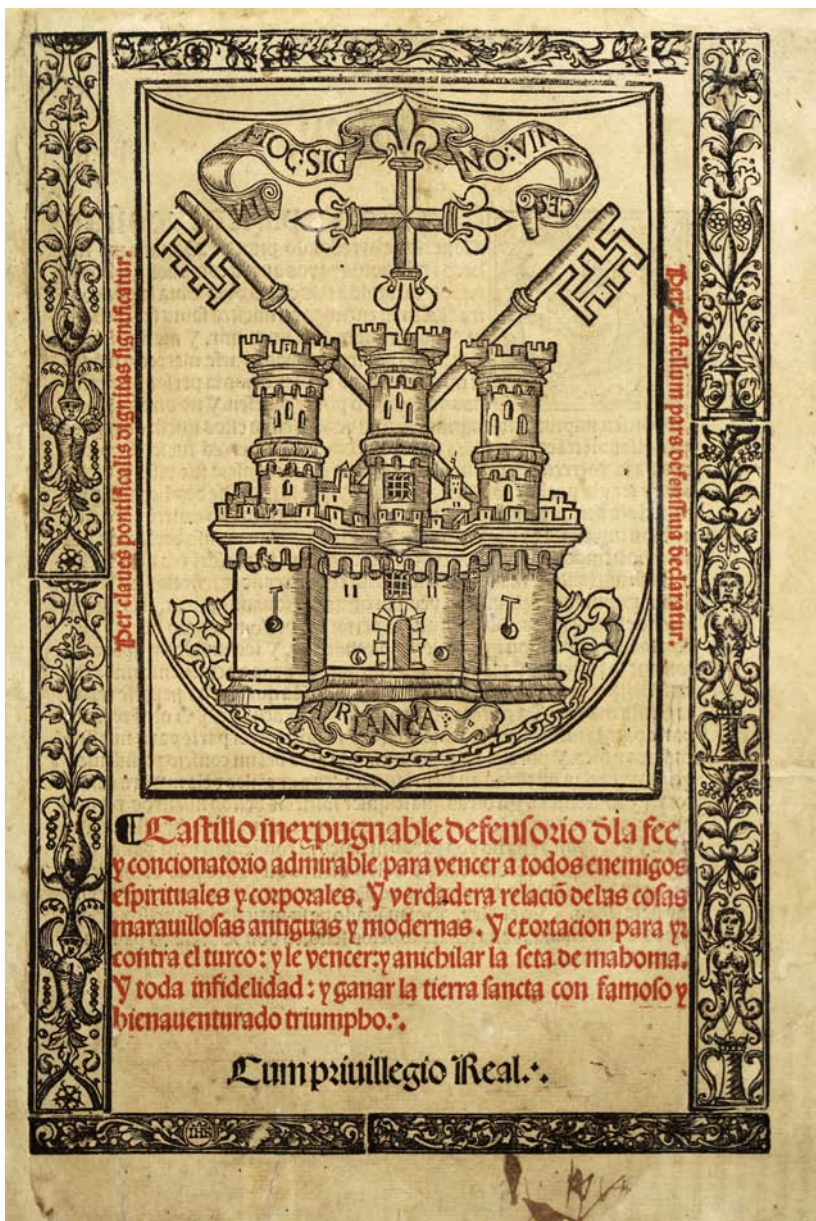 IN HOC SIG NO: VIN CES
Per claues pontificalis dignitas significatur.
Per Castellum pars defensiua declaratur.
ARLANÇA
Castillo inexpugnable defensorio dľa fee.
y concionatorio admirable para vencer a todos enemigos
espirituales y corporales. Y verdadera relaciõ delas cosas
marauillosas antiguas y modernas. Y exortacion para yr
contra el turco: y le vencer: y anichilar la seta de mahoma.
Y toda infidelidad: y ganar la tierra sancta con famoso y
bienauenturado triumpho.
Cum priuillegio Real.
IHS